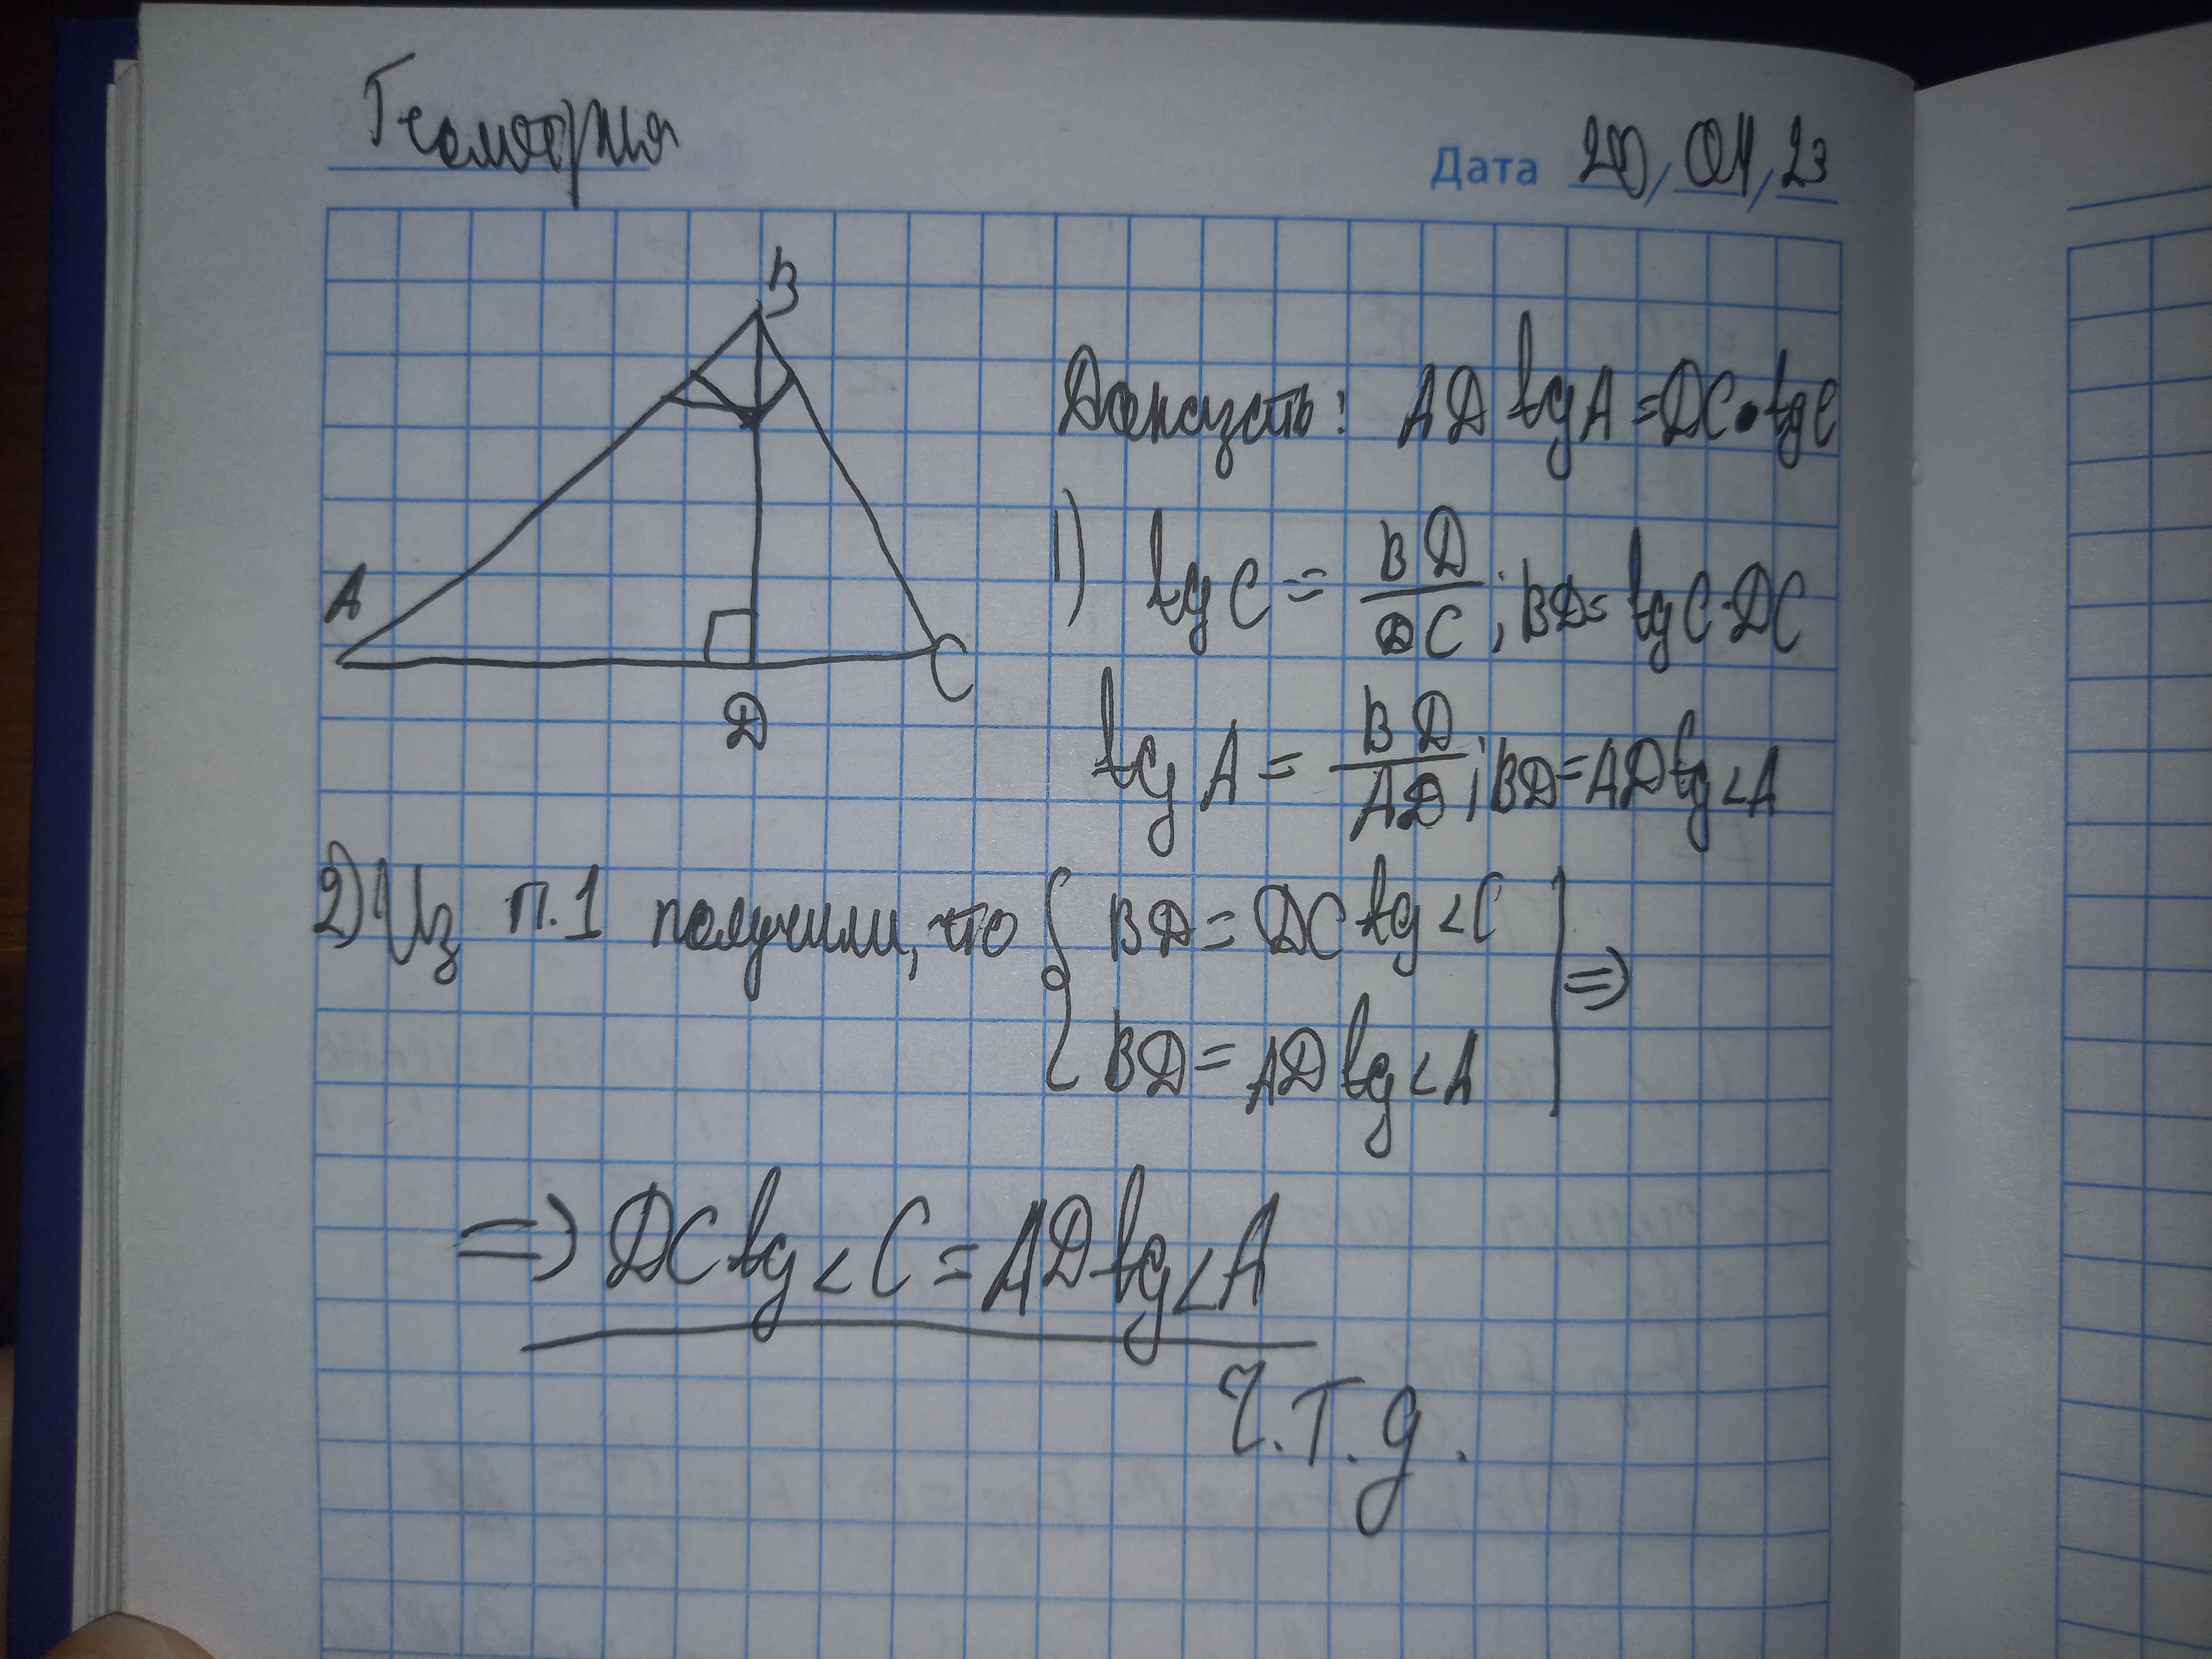 Геометрия
Дата 20/04/23
B
A
C
D
Доказать: AD tg A = DC • tg C
1) tg C = BD/DC; BD = tg C · DC
tg A = BD/AD; BD = AD tg ∠A
2) Из п.1 получили, что { BD = DC tg ∠C | ⇒
BD = AD tg ∠A
⇒ DC tg ∠C = AD tg ∠A
Ч.Т.д.